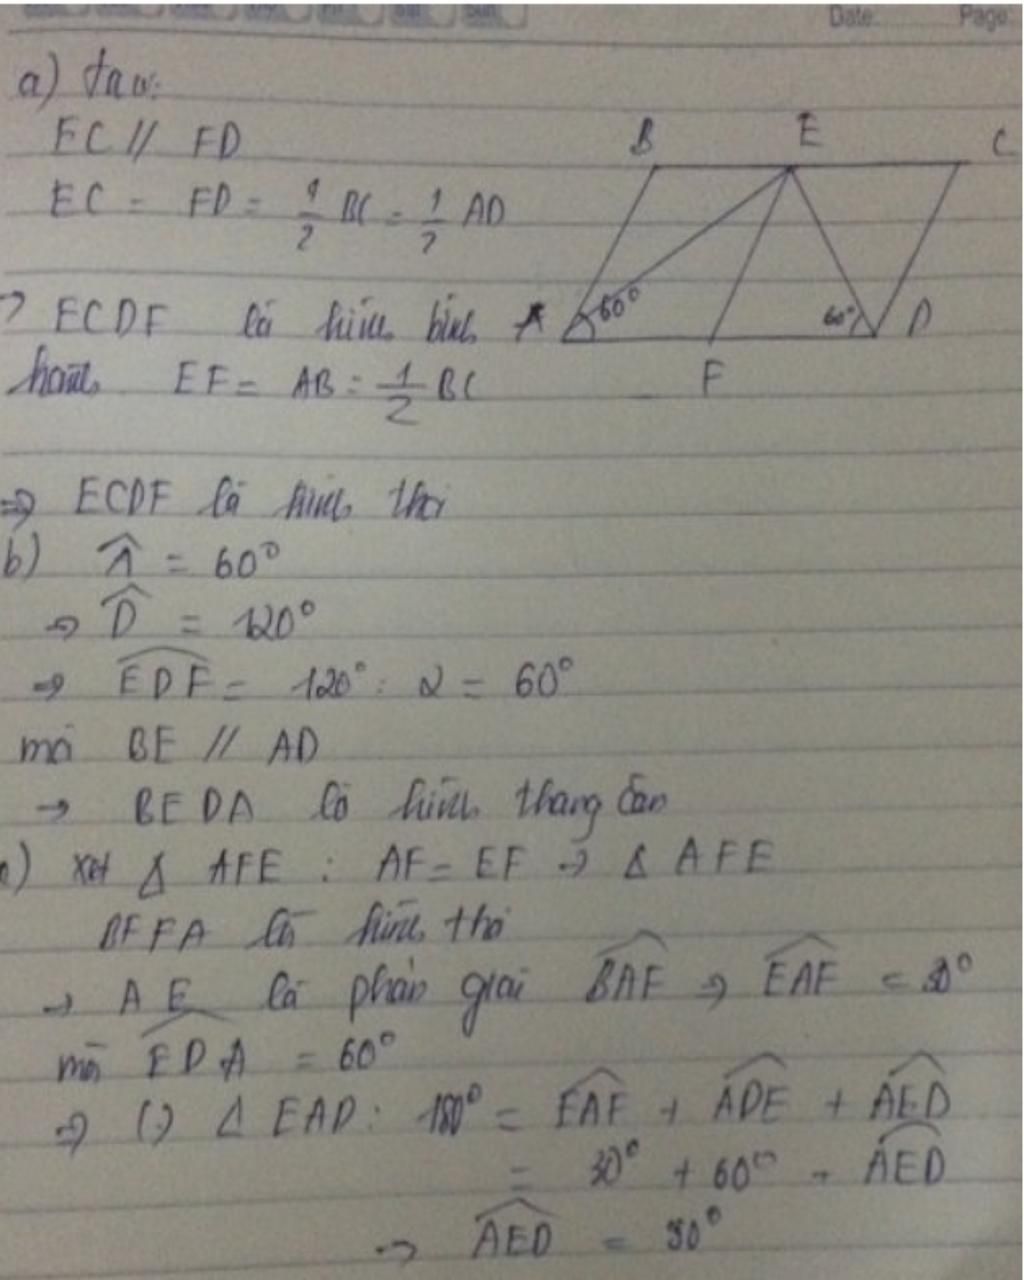 Date: Page:
a) ta có:
EC // FD
EC = FD = 1/2 BC = 1/2 AD
B E C
A 60° 60° D
F
→ ECDF là hình bình
hành EF = AB = 1/2 BC
⇒ ECDF là hình thoi
b) Â = 60°
⇒ D̂ = 120°
⇒ EDF = 120° : 2 = 60°
mà BE // AD
→ BEDA là hình thang cân
) Xét Δ AFE : AF = EF → Δ AFE
BEFA là hình thoi
→ AE là phân giái BAF ⇒ EAF = 30°
mà EDA = 60°
⇒ Δ EAD : 180° = EAF + ADE + AED
= 30° + 60° + AED
→ AED = 90°